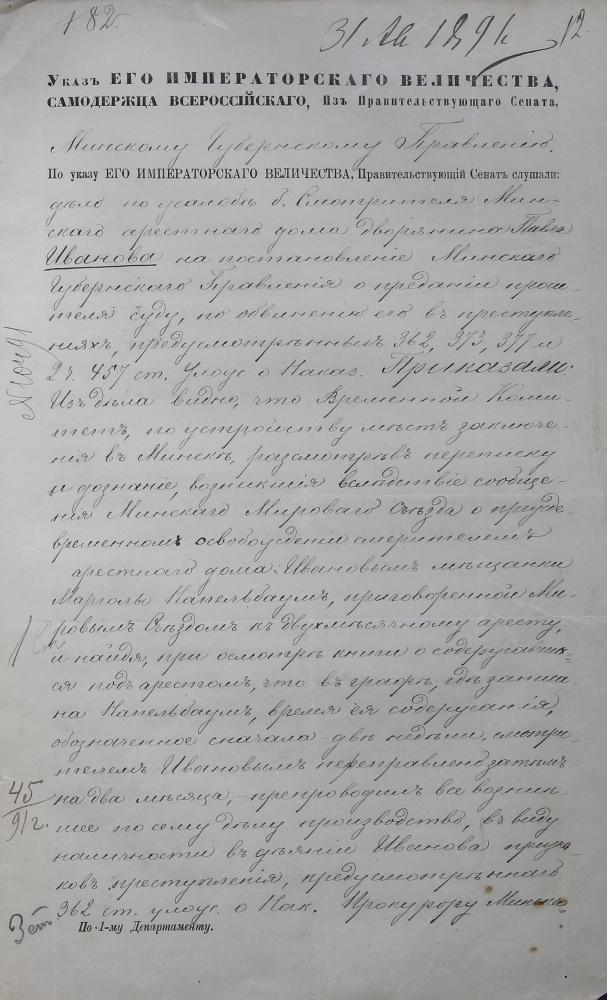 182.
31 Ав 1891 г.
12.
Указъ ЕГО ИМПЕРАТОРСКАГО ВЕЛИЧЕСТВА,
САМОДЕРЖЦА ВСЕРОССІЙСКАГО, Изъ Правительствующаго Сената,
Минскому Губернскому Правленію.
По указу ЕГО ИМПЕРАТОРСКАГО ВЕЛИЧЕСТВА, Правительствующій Сенатъ слушали:
дѣло по жалобѣ б. Смотрителя Мин-
скаго арестнаго дома дворянина Павла
Иванова на постановленіе Минскаго
Губернскаго Правленія о преданіи проси-
теля суду, по обвиненію его въ преступле-
ніяхъ, предусмотрѣнныхъ 362, 373, 377 и
2 ч. 457 ст. Улож. о Наказ. Приказали:
Изъ дѣла видно, что Временной Коми-
тетъ, по устройству мѣстъ заключе-
нія въ Минскѣ, разсмотрѣвъ переписку
и дознаніе, возникшія вслѣдствіе сообще-
нія Минскаго Мироваго Съѣзда о преж-
временномъ освобожденіи смотрителемъ
арестнаго дома: Ивановымъ мѣщанки
Марголы Капельбаумъ, приговоренной Ми-
ровымъ Съѣздомъ къ двухмѣсячному аресту,
и найдя, при осмотрѣ книги о содержавших-
ся подъ арестомъ, что въ графѣ, гдѣ записа-
на Капельбаумъ, время ея содержанія,
обозначенное сначала двѣ недѣли, смотри-
телемъ Ивановымъ переправлено затѣмъ
на два мѣсяца, - препроводилъ все возник-
шее по сему дѣлу производство, въ виду
наличности въ дѣяніи Иванова призна-
ковъ преступленія, предусмотрѣннаго
362 ст. улож. о Нак. Прокурору Минска-
По 1-му Департаменту.
45
91 г.
3 ст